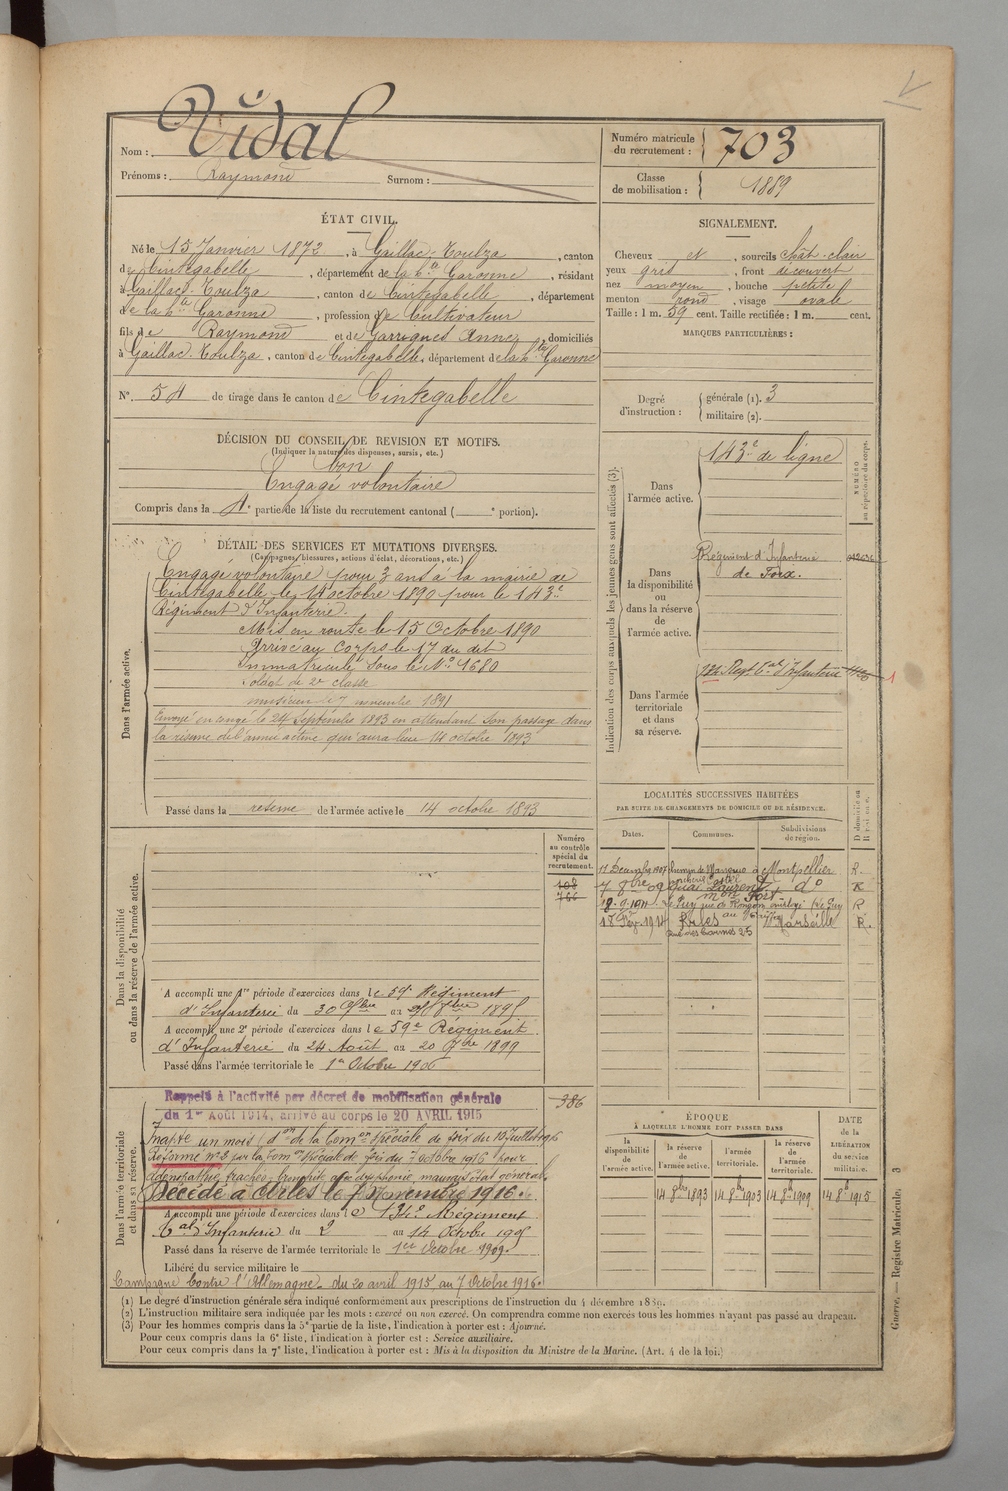 Nom : Vidal
Prénoms : Raymond Surnom :
Numéro matricule du recrutement : 703
Classe de mobilisation : 1889
ÉTAT CIVIL.
Né le 15 Janvier 1872, à Gaillac-Toulza, canton
de Cintegabelle, département de la hte Garonne, résidant
à Gaillac-Toulza, canton de Cintegabelle, département
de la hte Garonne, profession de Cultivateur
fils de Raymond et de Garrigues Anne, domiciliés
à Gaillac-Toulza, canton de Cintegabelle, département de la hte Garonne
N° 54 de tirage dans le canton de Cintegabelle
DÉCISION DU CONSEIL DE REVISION ET MOTIFS.
(Indiquer la nature des dispenses, sursis, etc.)
bon
Engagé volontaire
Compris dans la 4e partie de la liste du recrutement cantonal ( e portion).
SIGNALEMENT.
Cheveux et, sourcils chât-clair
yeux gris, front découvert
nez moyen, bouche petite
menton rond, visage ovale
Taille : 1 m. 59 cent. Taille rectifiée : 1 m. cent.
MARQUES PARTICULIÈRES :
Degré d'instruction : générale (1). 3
militaire (2).
Indication des corps auxquels les jeunes gens sont affectés (3).
NUMÉRO au répertoire du corps.
Dans l'armée active.
143e de ligne
Dans la disponibilité ou dans la réserve de l'armée active.
Régiment d'Infanterie
de Foix.
Dans l'armée territoriale et dans sa réserve.
134 Regt tal d'Infanterie
DÉTAIL DES SERVICES ET MUTATIONS DIVERSES.
(Campagnes, blessures, actions d'éclat, décorations, etc.)
Dans l'armée active.
Engagé volontaire pour 3 ans à la mairie de
Cintegabelle le 14 octobre 1890 pour le 143e
Régiment d'Infanterie.
Mis en route le 15 Octobre 1890
Arrivé au Corps le 17 du dit
Immatriculé sous le No 1680
Soldat de 2e classe
musicien le 7 novembre 1891
Envoyé en congé le 24 Septembre 1893 en attendant son passage dans
la réserve de l'armée active qui aura lieu 14 octobre 1893
Passé dans la réserve de l'armée active le 14 octobre 1893
LOCALITÉS SUCCESSIVES HABITÉES
PAR SUITE DE CHANGEMENTS DE DOMICILE OU DE RÉSIDENCE.
Dates. Communes. Subdivisions de région. D domicile ou R résidence.
Montpellier R.
7 8bre 09 Quai Laurens do R
18-9-1911 Le Puy R
18 Fév. 1914 Arles Marseille R.
rue des Carmes 25
Numéro au contrôle spécial du recrutement.
108
766
Dans la disponibilité ou dans la réserve de l'armée active.
A accompli une 1re période d'exercices dans le 59e Régiment
d'Infanterie du 30 7bre au 8bre 1895
A accompli une 2e période d'exercices dans le 59e Régiment
d'Infanterie du 24 Août au 20 7bre 1899
Passé dans l'armée territoriale le 1er Octobre 1906
386
Dans l'armée territoriale et dans sa réserve.
Rappelé à l'activité par décret de mobilisation générale
du 1er Août 1914, arrivé au corps le 20 AVRIL 1915
Inapte un mois (don de la Comon Spéciale de Foix du 10 Juillet 1916
Réformé no 2 par la Comon spéciale de Foix du 7 octobre 1916 pour
mauvais état général.
Décédé à Arles le Novembre 1916.
A accompli une période d'exercices dans le 134e Régiment
tal d'Infanterie du 2 au 14 Octobre 1905
Passé dans la réserve de l'armée territoriale le 1er Octobre 1909.
Libéré du service militaire le
Campagne Contre l'Allemagne. du 20 avril 1915 au 7 Octobre 1916.
ÉPOQUE
À LAQUELLE L'HOMME FOIT PASSER DANS
DATE de la LIBÉRATION du service militaire.
la disponibilité de l'armée active. la réserve de l'armée active. l'armée territoriale. la réserve de l'armée territoriale.
14 8bre 1893 14 8bre 1903 14 8bre 1909 14 8bre 1915
(1) Le degré d'instruction générale sera indiqué conformément aux prescriptions de l'instruction du 4 décembre 1889.
(2) L'instruction militaire sera indiquée par les mots : exercé ou non exercé. On comprendra comme non exercés tous les hommes n'ayant pas passé au drapeau.
(3) Pour les hommes compris dans la 5e partie de la liste, l'indication à porter est : Ajourné.
Pour ceux compris dans la 6e liste, l'indication à porter est : Service auxiliaire.
Pour ceux compris dans la 7e liste, l'indication à porter est : Mis à la disposition du Ministre de la Marine. (Art. 4 de la loi.)
Guerre. — Registre Matricule. 3